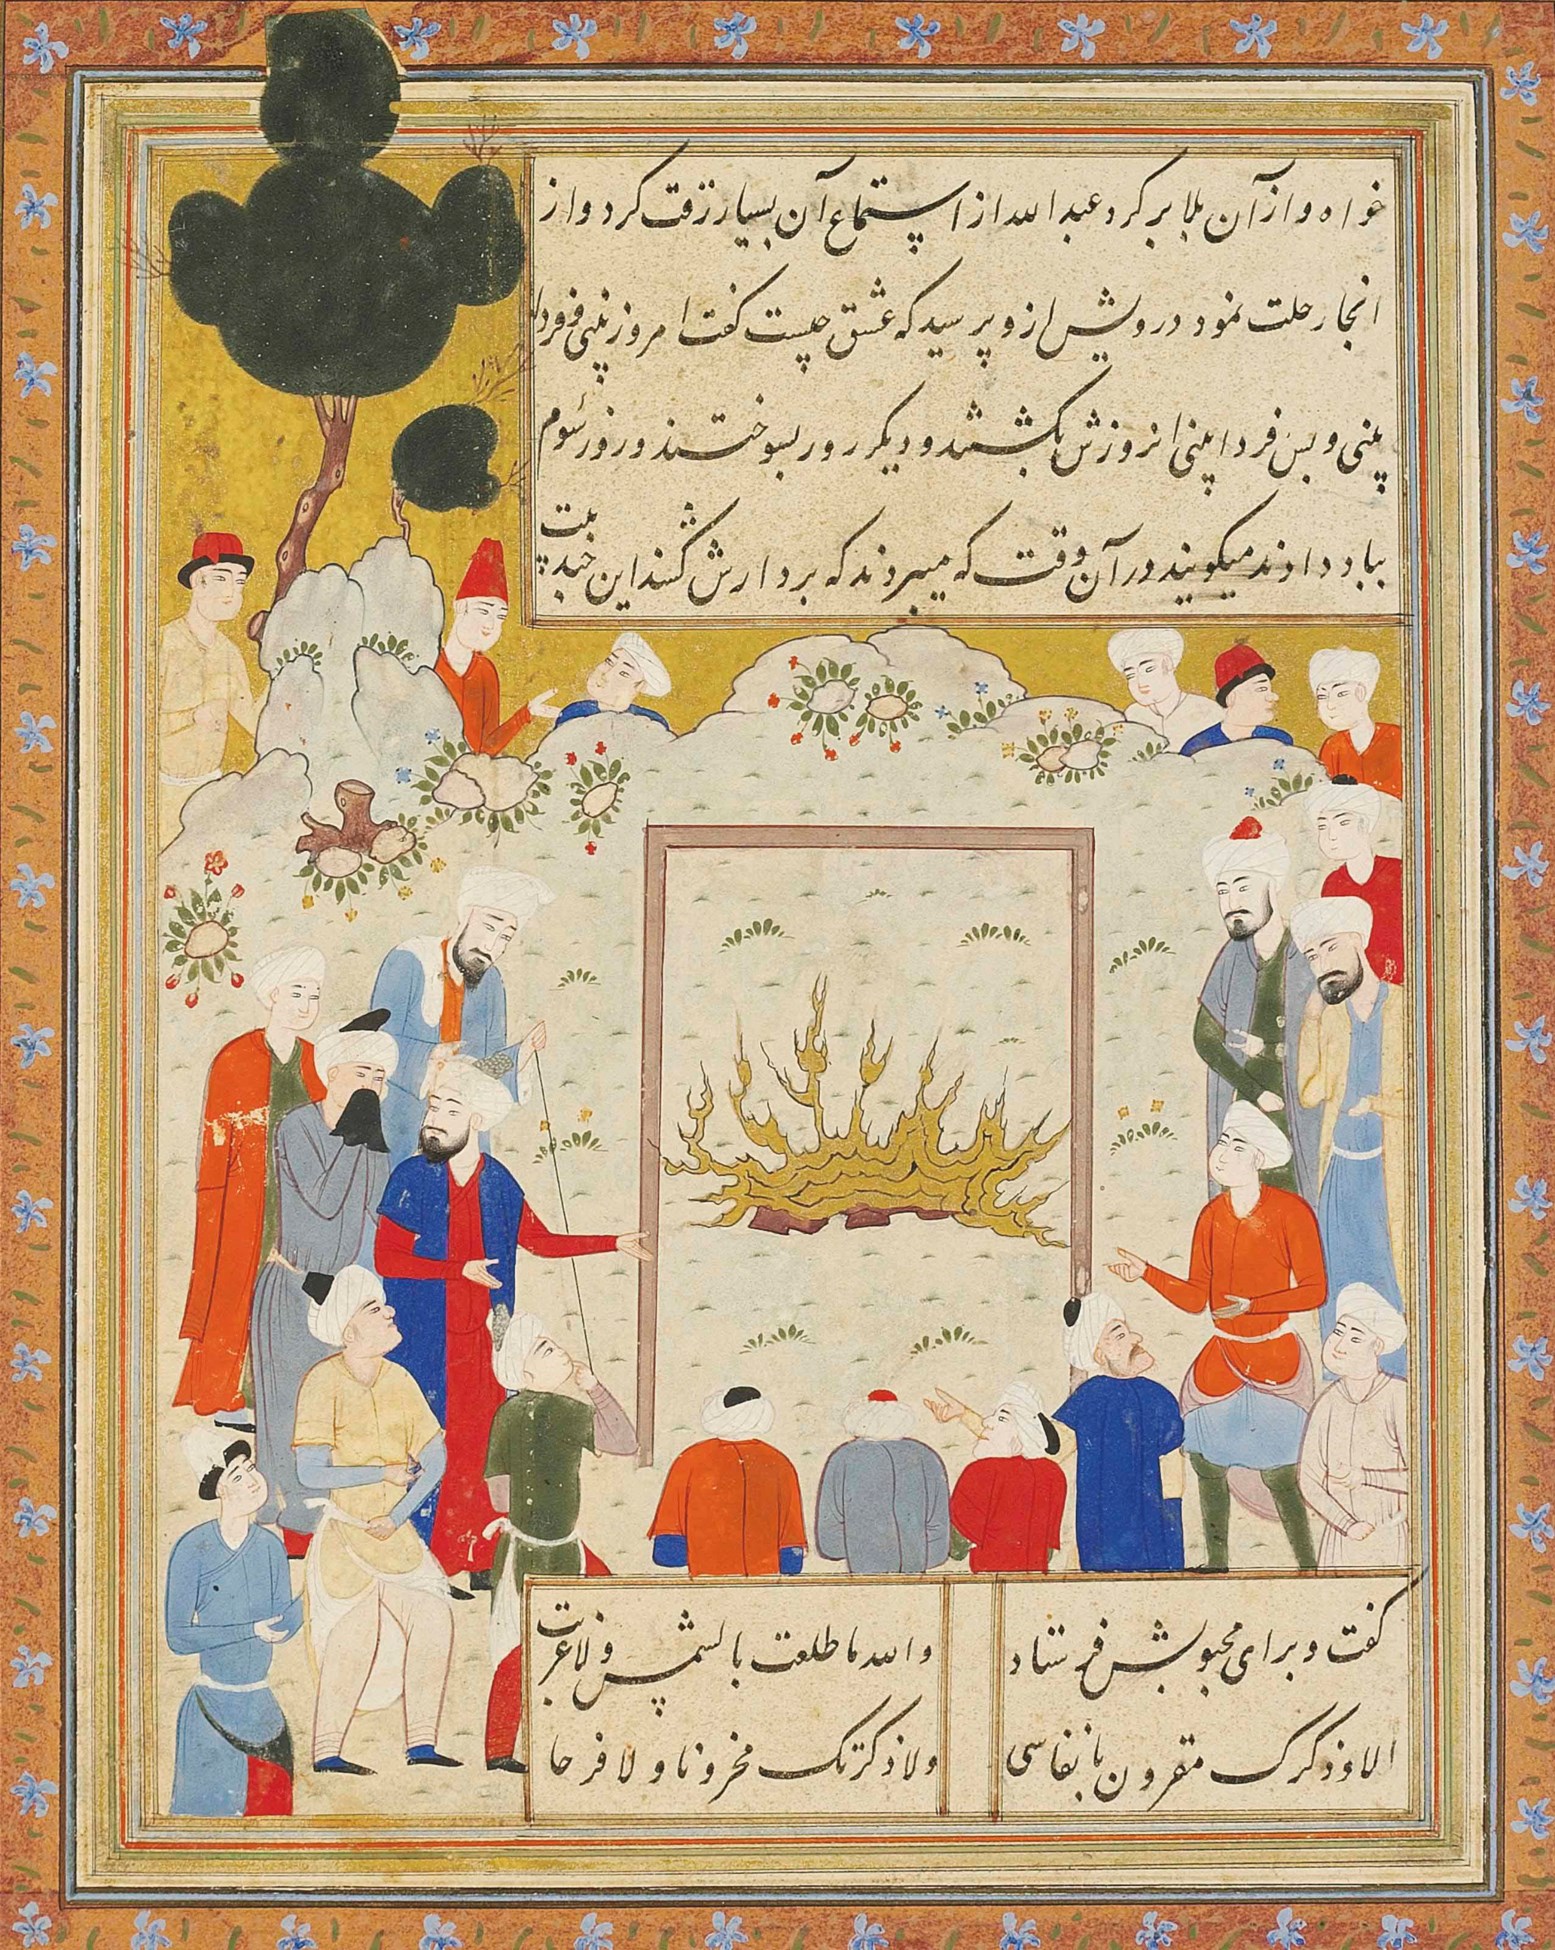 خواه و از آن بلا بر کرد عبد الله از استماع آن بسیار رقت کرد و از
انجا رحلت نمود درویش ازو پرسید که عشق چیست گفت امروز بینی و فردا
بینی و پس فردا بینی انروزش بکشتند و دیکر روز بسوختند و روز سوم
بباد دادند میکویند در آن وقت که میبردند که بر دارش کشند این چند بیت
گفت و برای محبوبش فرستاد
والله ما طلعت بالشمس ولا غربت
الا و ذکرک مقرون بانفاسی
ولا ذکرتک محزونا ولا فرحا